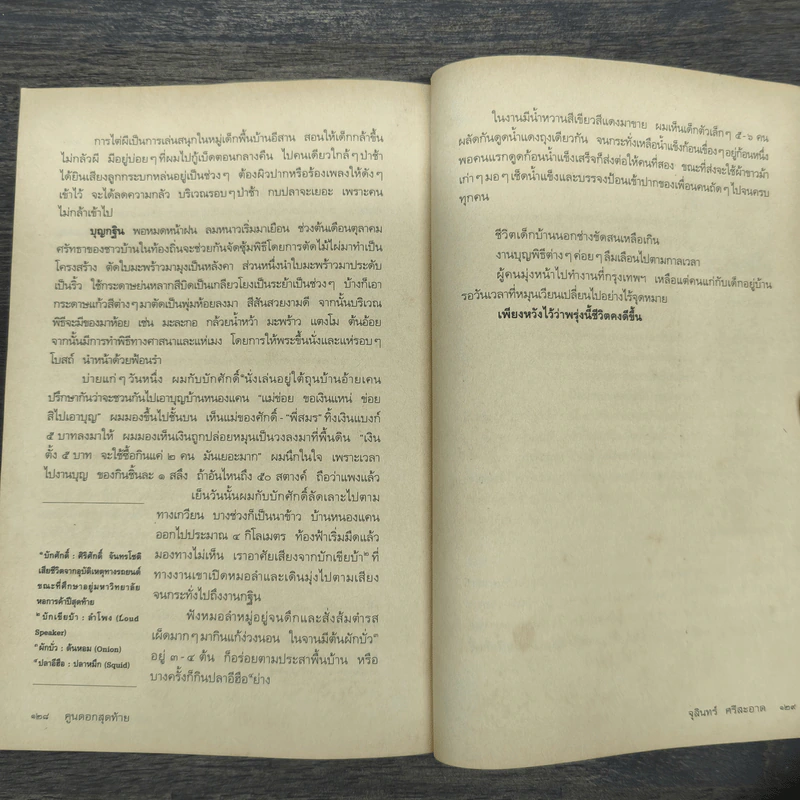 การไต่ผีเป็นการเล่นสนุกในหมู่เด็กพื้นบ้านอีสาน สอนให้เด็กกล้าขึ้น
ไม่กลัวผี มีอยู่บ่อยๆที่ผมไปกู้เบ็ดตอนกลางคืน ไปคนเดียวใกล้ๆป่าช้า
ได้ยินเสียงลูกกระบกหล่นอยู่เป็นช่วงๆ ต้องผิวปากหรือร้องเพลงให้ดังๆ
เข้าไว้ จะได้ลดความกลัว บริเวณรอบๆป่าช้า กบปลาจะเยอะ เพราะคน
ไม่กล้าเข้าไป
บุญกฐิน พอหมดหน้าฝน ลมหนาวเริ่มมาเยือน ช่วงต้นเดือนตุลาคม
ศรัทธาของชาวบ้านในท้องถิ่นจะช่วยกันจัดซุ้มพิธีโดยการตัดไม้ไผ่มาทำเป็น
โครงสร้าง ตัดใบมะพร้าวมามุงเป็นหลังคา ส่วนหนึ่งนำใบมะพร้าวมาประดับ
เป็นริ้ว ใช้กระดาษย่นหลากสีบิดเป็นเกลียวโยงเป็นระย้าเป็นช่วงๆ บ้างก็เอา
กระดาษแก้วสีต่างๆมาตัดเป็นพุ่มห้อยลงมา สีสันสวยงามดี จากนั้นบริเวณ
พิธีจะมีของมาห้อย เช่น มะละกอ กล้วยน้ำหว้า มะพร้าว แตงโม ต้นอ้อย
จากนั้นมีการทำพิธีทางศาสนาและแห่เมง โดยการให้พระขึ้นนั่งและแห่รอบๆ
โบสถ์ นำหน้าด้วยฟ้อนรำ
บ่ายแก่ๆวันหนึ่ง ผมกับบักศักดิ์ นั่งเล่นอยู่ใต้ถุนบ้านอ้ายเคน
ปรึกษากันว่าจะชวนกันไปเอาบุญบ้านหนองแคน “แม่ข่อย ขอเงินแหน่ ข่อย
สิไปเอาบุญ” ผมมองขึ้นไปชั้นบน เห็นแม่ของศักดิ์ - “พี่สมร” ทิ้งเงินแบงก์
๕ บาทลงมาให้ ผมมองเห็นเงินถูกปล่อยหมุนเป็นวงลงมาที่พื้นดิน “เงิน
ตั้ง ๕ บาท จะใช้ซื้อกินแค่ ๒ คน มันเยอะมาก” ผมนึกในใจ เพราะเวลา
ไปงานบุญ ของกินชิ้นละ ๑ สลึง ถ้าอันไหนถึง ๕๐ สตางค์ ถือว่าแพงแล้ว
เย็นวันนั้นผมกับบักศักดิ์ลัดเลาะไปตาม
ทางเกวียน บางช่วงก็เป็นนาข้าว บ้านหนองแคน
ออกไปประมาณ ๔ กิโลเมตร ท้องฟ้าเริ่มมืดแล้ว
มองทางไม่เห็น เราอาศัยเสียงจากบักเขียบ้า๒ ที่
ทางงานเขาเปิดหมอลำและเดินมุ่งไปตามเสียง
จนกระทั่งไปถึงงานกฐิน
ฟังหมอลำหมู่อยู่จนดึกและสั่งส้มตำรส
เผ็ดมากๆมากินแก้ง่วงนอน ในจานมีต้นผักบั่ว๓
อยู่ ๓ - ๔ ต้น ก็อร่อยตามประสาพื้นบ้าน หรือ
บางครั้งก็กินปลาอีฮือ๔ย่าง
บักศักดิ์ : ศิริศักดิ์ จันทรโชติ
เสียชีวิตจากอุบัติเหตุทางรถยนต์
ขณะที่ศึกษาอยู่มหาวิทยาลัย
หอการค้าปีสุดท้าย
๒บักเขียบ้า : ลำโพง (Loud
Speaker)
๓ผักบั่ว : ต้นหอม (Onion)
๔ปลาอีฮือ : ปลาหมึก (Squid)
๑๒๘ คูนดอกสุดท้าย
ในงานมีน้ำหวานสีเขียวสีแดงมาขาย ผมเห็นเด็กตัวเล็กๆ ๕-๖ คน
ผลัดกันดูดน้ำแดงถุงเดียวกัน จนกระทั่งเหลือน้ำแข็งก้อนเขื่องๆอยู่ก้อนหนึ่ง
พอคนแรกดูดก้อนน้ำแข็งเสร็จก็ส่งต่อให้คนที่สอง ขณะที่ส่งจะใช้ผ้าขาวม้า
เก่าๆมอๆเช็ดน้ำแข็งและบรรจงป้อนเข้าปากของเพื่อนคนถัดๆไปจนครบ
ทุกคน
ชีวิตเด็กบ้านนอกช่างขัดสนเหลือเกิน
งานบุญพิธีต่างๆค่อยๆลืมเลือนไปตามกาลเวลา
ผู้คนมุ่งหน้าไปทำงานที่กรุงเทพฯ เหลือแต่คนแก่กับเด็กอยู่บ้าน
รอวันเวลาที่หมุนเวียนเปลี่ยนไปอย่างไร้จุดหมาย
เพียงหวังไว้ว่าพรุ่งนี้ชีวิตคงดีขึ้น
จุลินทร์ ศรีสะอาด ๑๒๙